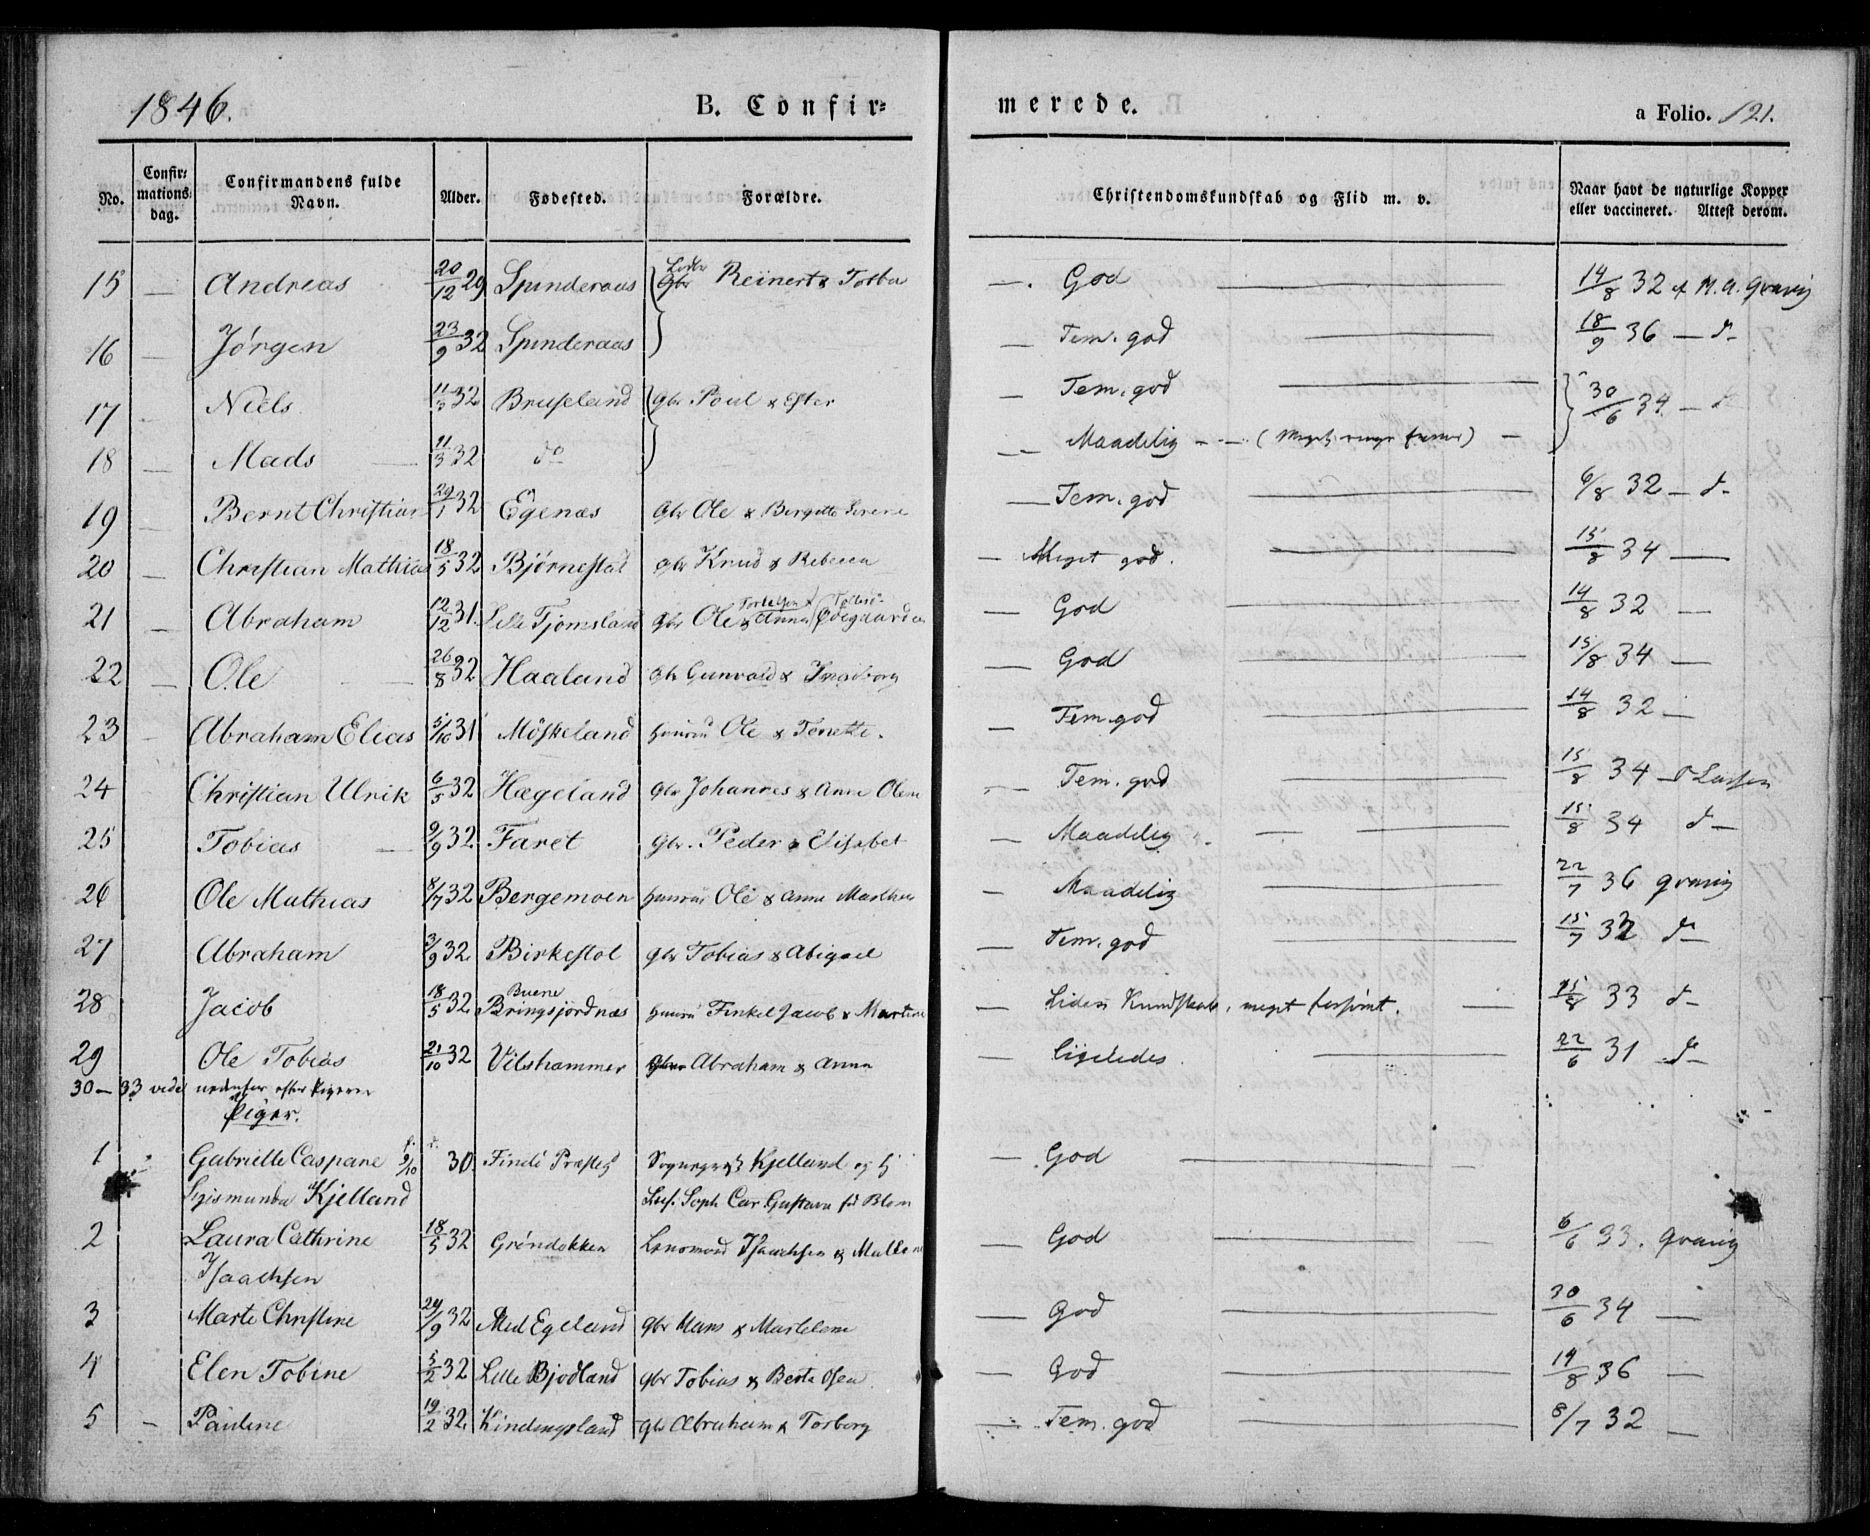 1846.
B. Confirmerede.
a Folio. 121.
No. Confirmationsdag. Confirmandens fulde Navn. Alder. Fødested. Forældre. Christendomskundskab og Flid m. v. Naar havt de naturlige Kopper eller vaccineret. Attest derom.
15 — Andreas 20/12 29 Spinderaas Gbr Reinert & — . God — 14/8 32 af M. A. Qvavig
16 — Jørgen 23/9 32 Spinderaas — Tem. god — 18/9 36 — d—
17 — Niels 11/3 32 Bruseland Gbr Poul & Ester — Tem. god — 30/6 34 — d
18 — Mads — 11/3 32 do — Maadelig — — (meget ringe —
19 — Bernt Christian 29/1 32 Egenæs Gbr Ole & Birgitte Serene — Tem. god — 6/8 32 — d—
20 — Christian Mathias 18/5 32 Bjørnestad Gbr Knud & Rebecca — Meget god. — 15/8 34 —
21 — Abraham 12/12 31. Lille Tjomsland Gbr Ole & Anna — God — 14/8 32 —
22 — Ole — 26/8 32 Haaland Gbr Gunvald & Ingeborg — God — 15/8 34 —
23 — Abraham Elias 5/10 31 Møskeland Ole & Tonette. — Tem. god — 14/8 32 —
24 Christian Ulrik 6/5 32 Hægeland Gbr Johannes & Anne Olene — Tem. god — 15/8 34 —
25 Tobias — 9/9 32. Faret Gbr. Peder & Elisabet — Maadelig — — 15/8 34 d—
26 Ole Mathias 8/7 32 Bergemoen Ole & Anne Marthea — Maadelig — 22/7 36 Qvavig
27 Abraham 3/9 32. Birkestol Gbr Tobias & Abigael — Tem. god — 15/7 32 d—
28 Jacob 18/5 32. Buene Bringsjordnæs Jacob & Martine — Liden Kundskab, meget forsømt. — 15/8 33 d—
29 Ole Tobias 21/10 32 Vilshammer Abraham & Anna — Ligeledes. — 22/6 31 d—
30 — 33 vide nedenfor efter Pigerne
Piger.
1 Gabrielle Caspane f. 9/10 30. Finde Præsteg. Sogneprest Kjelland og — God —
Sigismunda Kjelland Soph. Car. Gustava
2 Laura Cathrine 18/5 32 Grøndokken Lensmand Isaachsen & — God — 6/6 33. Qvavig
Isaachsen
3 Marte Christine 24/9 32 Med Egeland Gbr Hans & Martelene — God — 30/6 34 —
4 Elen Tobine 5/2 32 Lille Bjodland Gbr Tobias & Berte Olsen — God — 14/8 36 —
5 — Pauline 19/2 32. Kindingsland Gbr Abraham & Torborg — Tem. god — 8/7 32 —